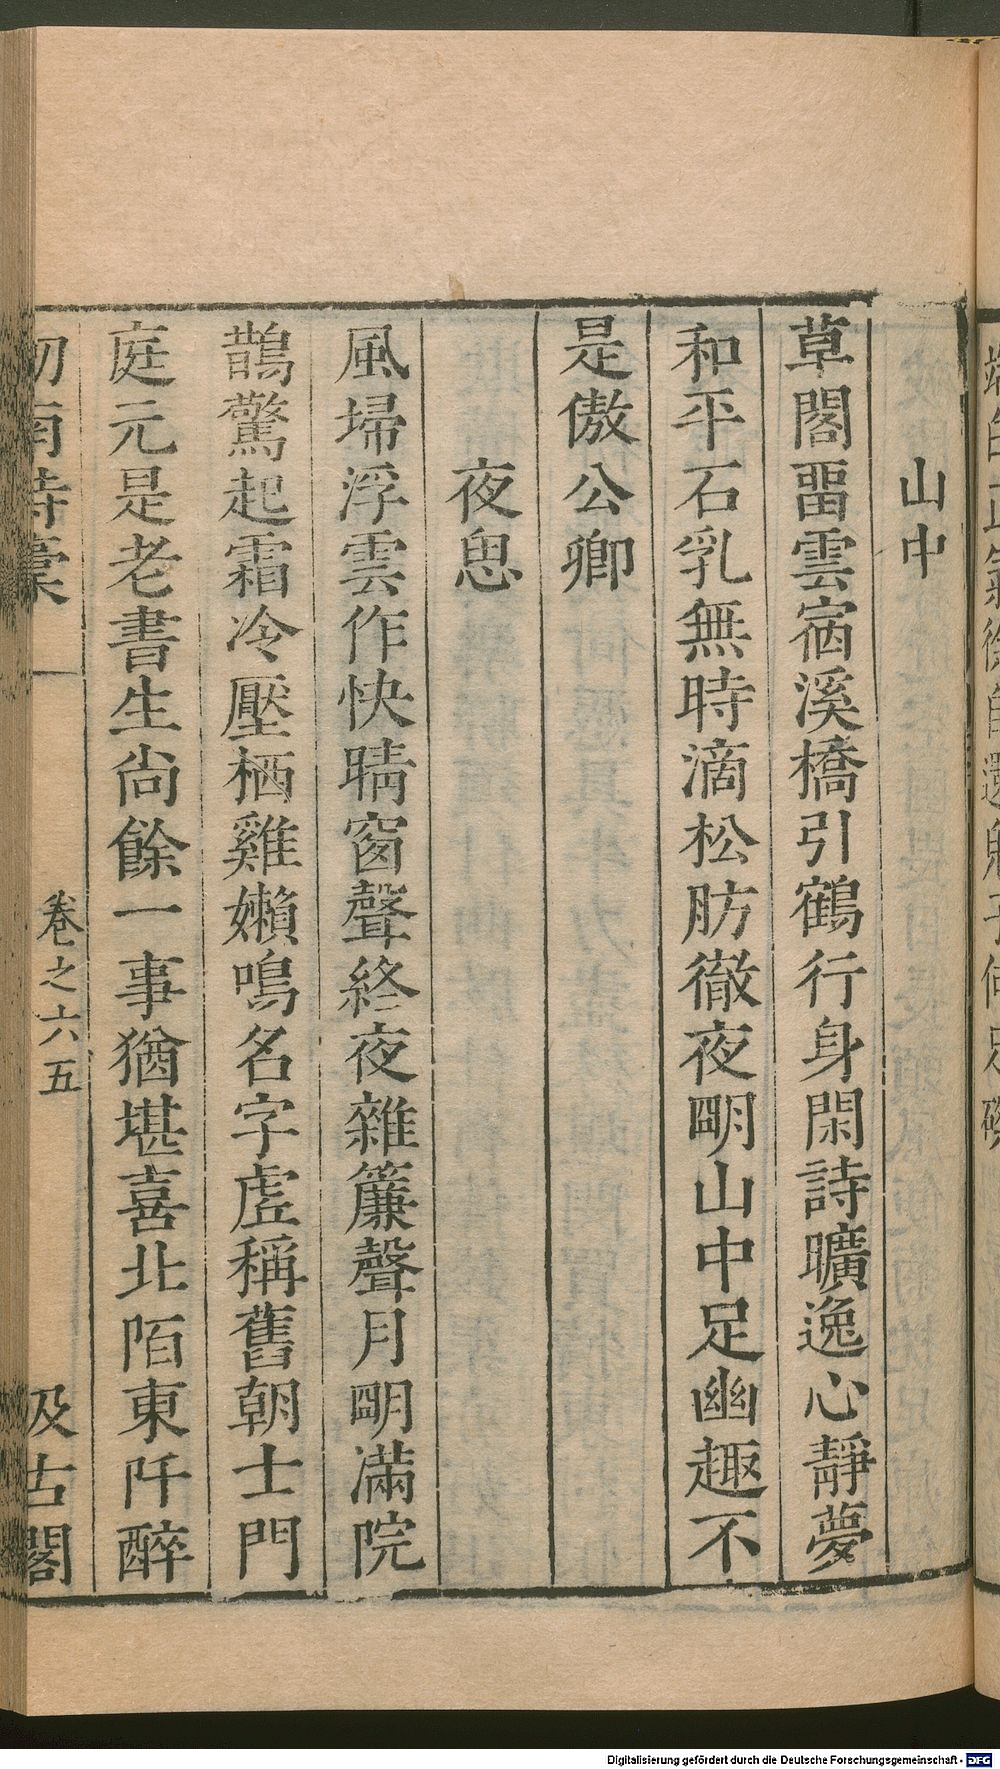 山中
草閣畱雲宿溪橋引鶴行身閑詩曠逸心靜夢
和平石乳無時滴松肪徹夜朙山中足幽趣不
是傲公卿
夜思
風埽浮雲作快晴窗聲終夜雜簾聲月朙滿院
鵲驚起霜冷壓栖雞嬾鳴名字虛稱舊朝士門
庭元是老書生尙餘一事猶堪喜北陌東阡醉
初南詩稾
卷之六
五
汲古閣
Digitalisierung gefördert durch die Deutsche Forschungsgemeinschaft - DFG